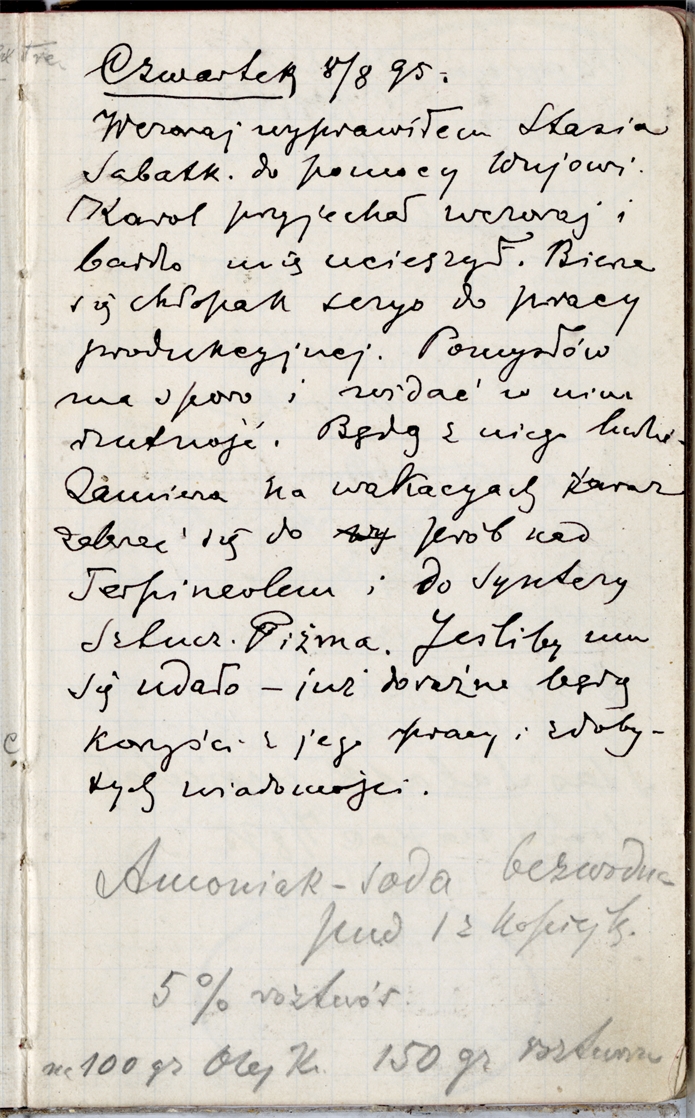 Czwartek 8/8 95.
Wczoraj wyprawiłem Stasia
Sabatk. do pomocy Wujowi.
Karol przyjechał wczoraj i
bardzo mię ucieszył. Bierze
się chłopak seryo do pracy
produkcyjnej. Pomysłów
ma sporo i widać w nim
rzutność. Będą z niego ludzie
Zamierza na wakacyach zaraz
zabrać się do prób nad
Terpineolem i do Syntezy
Sztucz. Piżma. Jeśliby mu
się udało – już doraźne będą
korzyści z jego pracy i zdoby-
tych wiadomości.
Amoniak – soda bezwodna
pud 1 z kopiejk.
5% roztwór.
na 100 gr Olejk. 150 gr roztworu